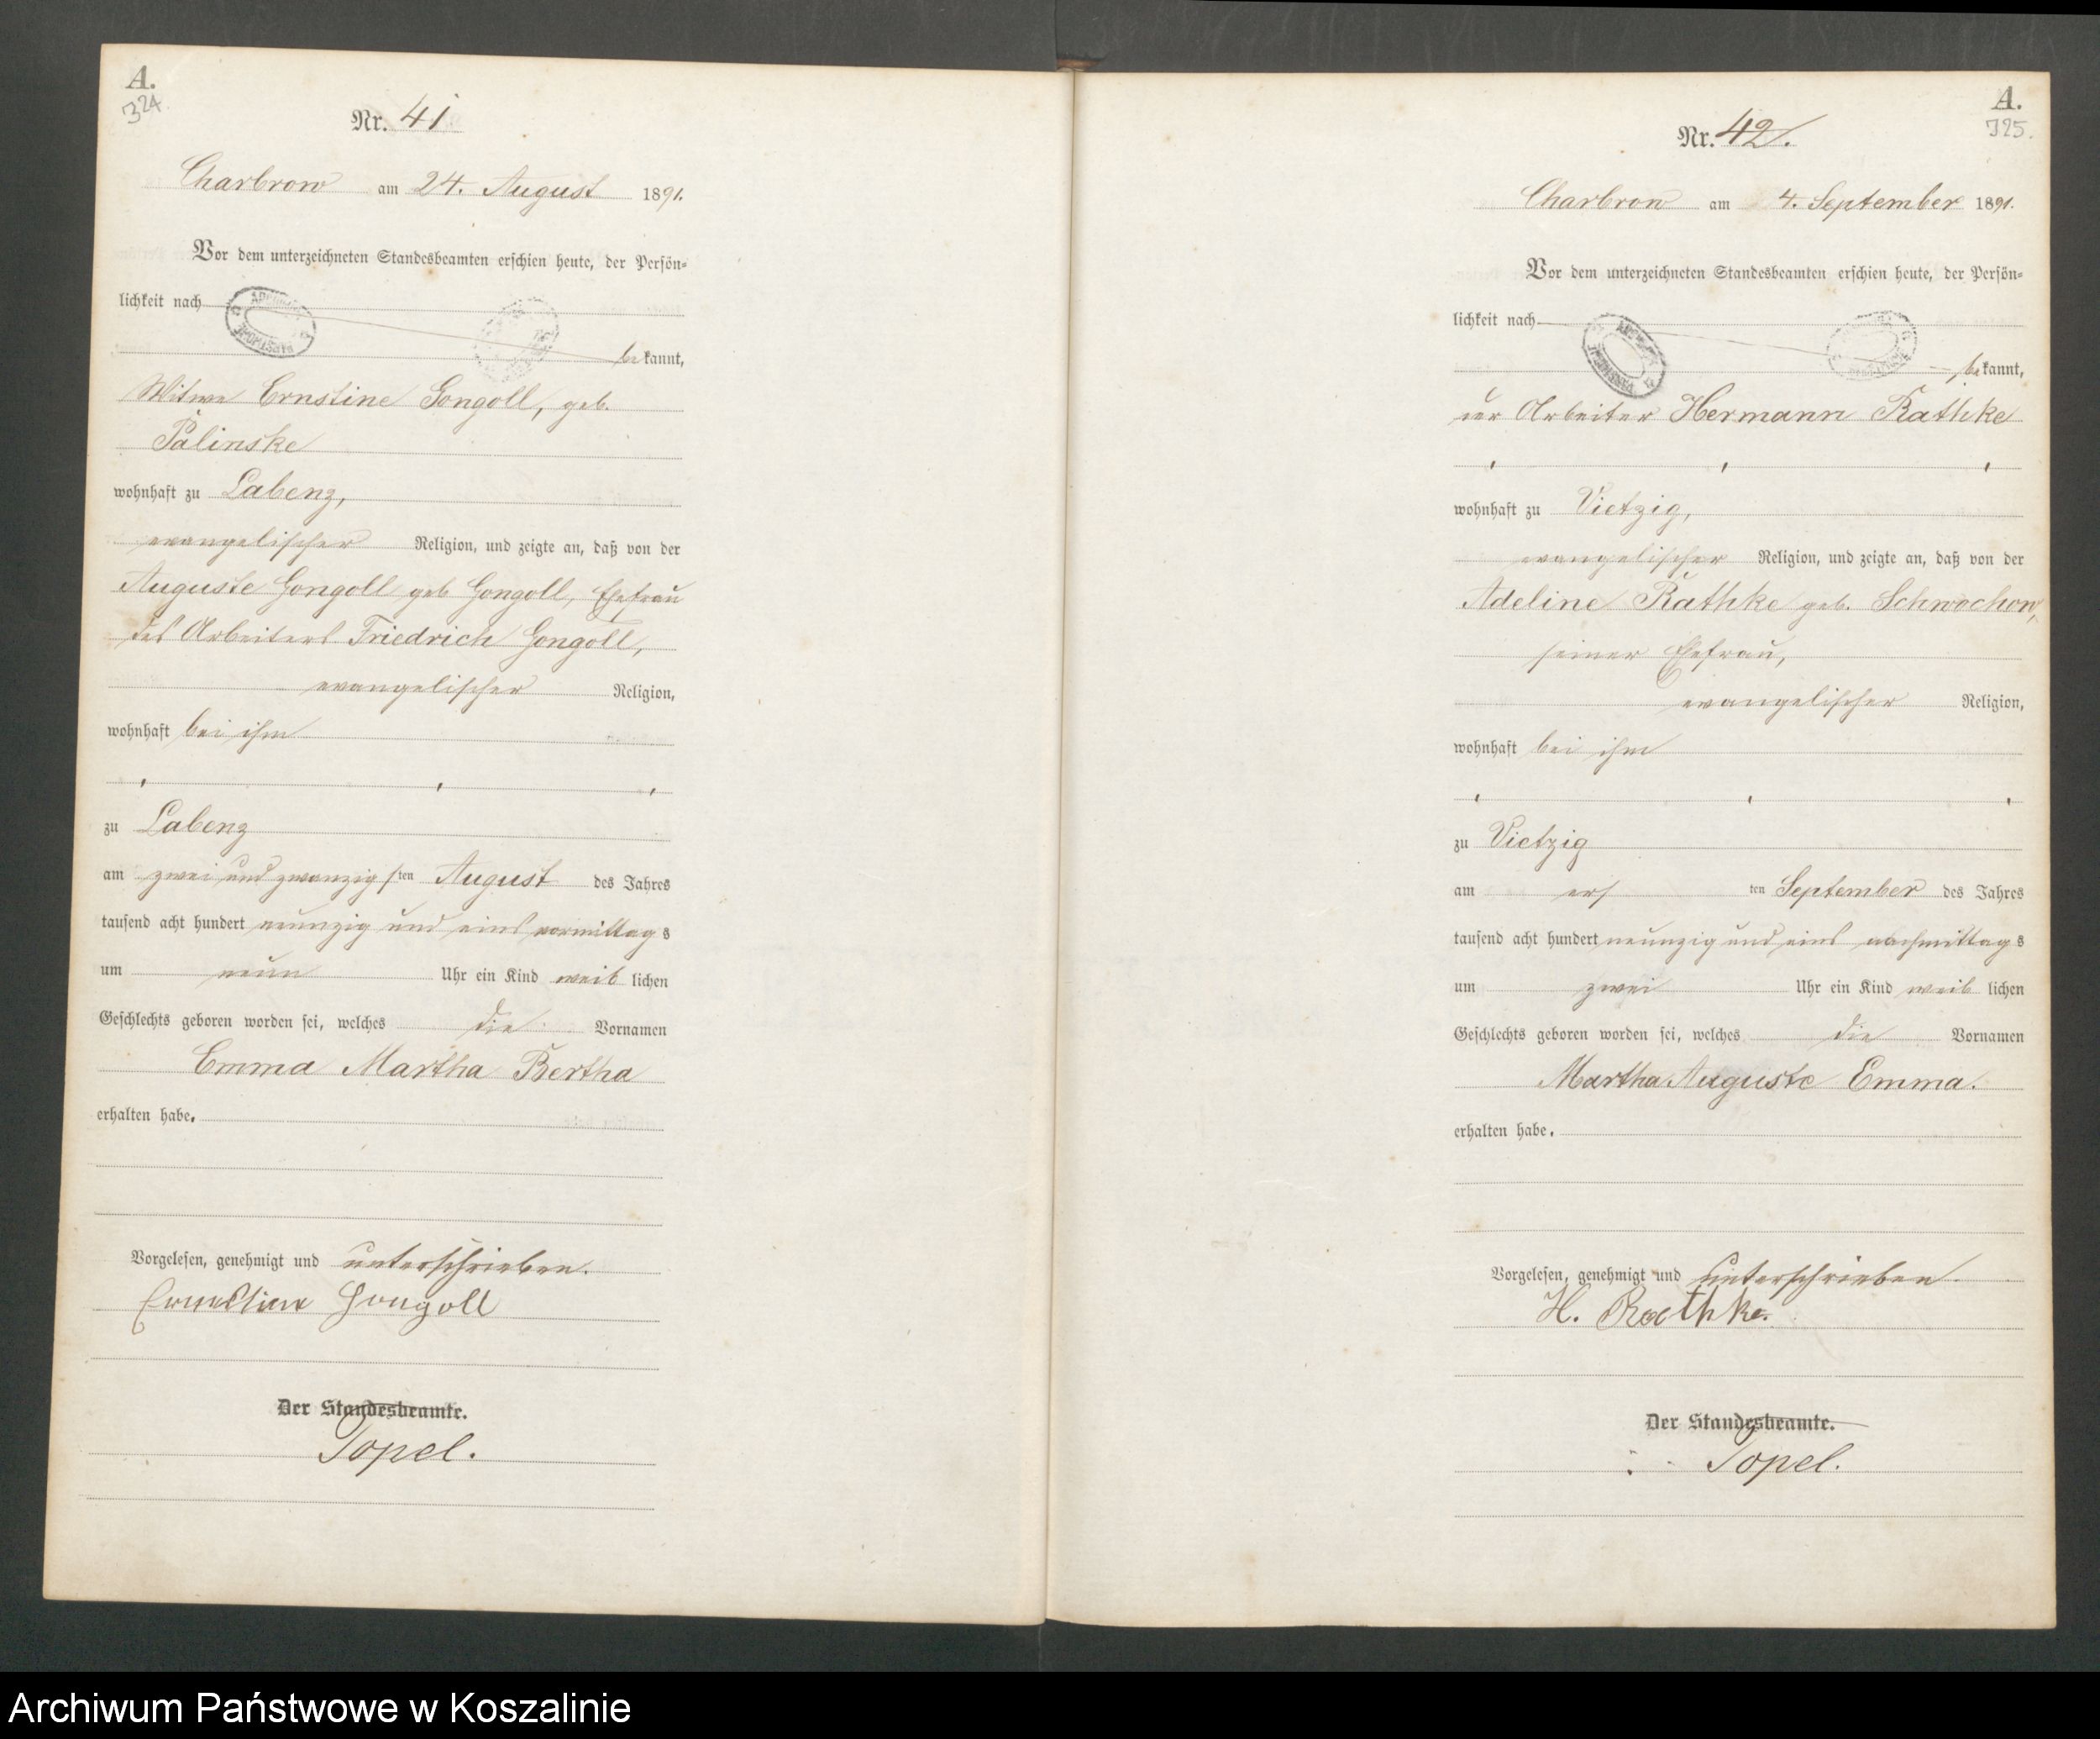 A.
324
Nr. 41
Charbrow am 24. August 1891.
Vor dem unterzeichneten Standesbeamten erschien heute, der Persön-
lichkeit nach
bekannt,
Witwe Ernstine Gongoll, geb.
Palinske
wohnhaft zu Labenz,
evangelischer Religion, und zeigte an, daß von der
Auguste Gongoll geb Gongoll, Ehefrau
des Arbeiters Friedrich Gongoll,
evangelischer Religion,
wohnhaft bei ihm
zu Labenz
am zwei und zwanzigsten August des Jahres
tausend acht hundert neunzig und eins vormittags
um neun Uhr ein Kind weiblichen
Geschlechts geboren worden sei, welches die Vornamen
Emma Martha Bertha
erhalten habe.
Vorgelesen, genehmigt und unterschrieben.
Ernestine Gongoll
Der Standesbeamte.
Topel.
A.
325.
Nr. 42.
Charbrow am 4. September 1891.
Vor dem unterzeichneten Standesbeamten erschien heute, der Persön-
lichkeit nach
bekannt,
der Arbeiter Hermann Rathke
wohnhaft zu Vietzig,
evangelischer Religion, und zeigte an, daß von der
Adeline Rathke geb. Schwochow,
seiner Ehefrau,
evangelischer Religion,
wohnhaft bei ihm
zu Vietzig
am ersten September des Jahres
tausend acht hundert neunzig und eins nachmittags
um zwei Uhr ein Kind weiblichen
Geschlechts geboren worden sei, welches die Vornamen
Martha Auguste Emma.
erhalten habe.
Vorgelesen, genehmigt und unterschrieben.
H. Rathke.
Der Standesbeamte.
Topel.
Archiwum Państwowe w Koszalinie